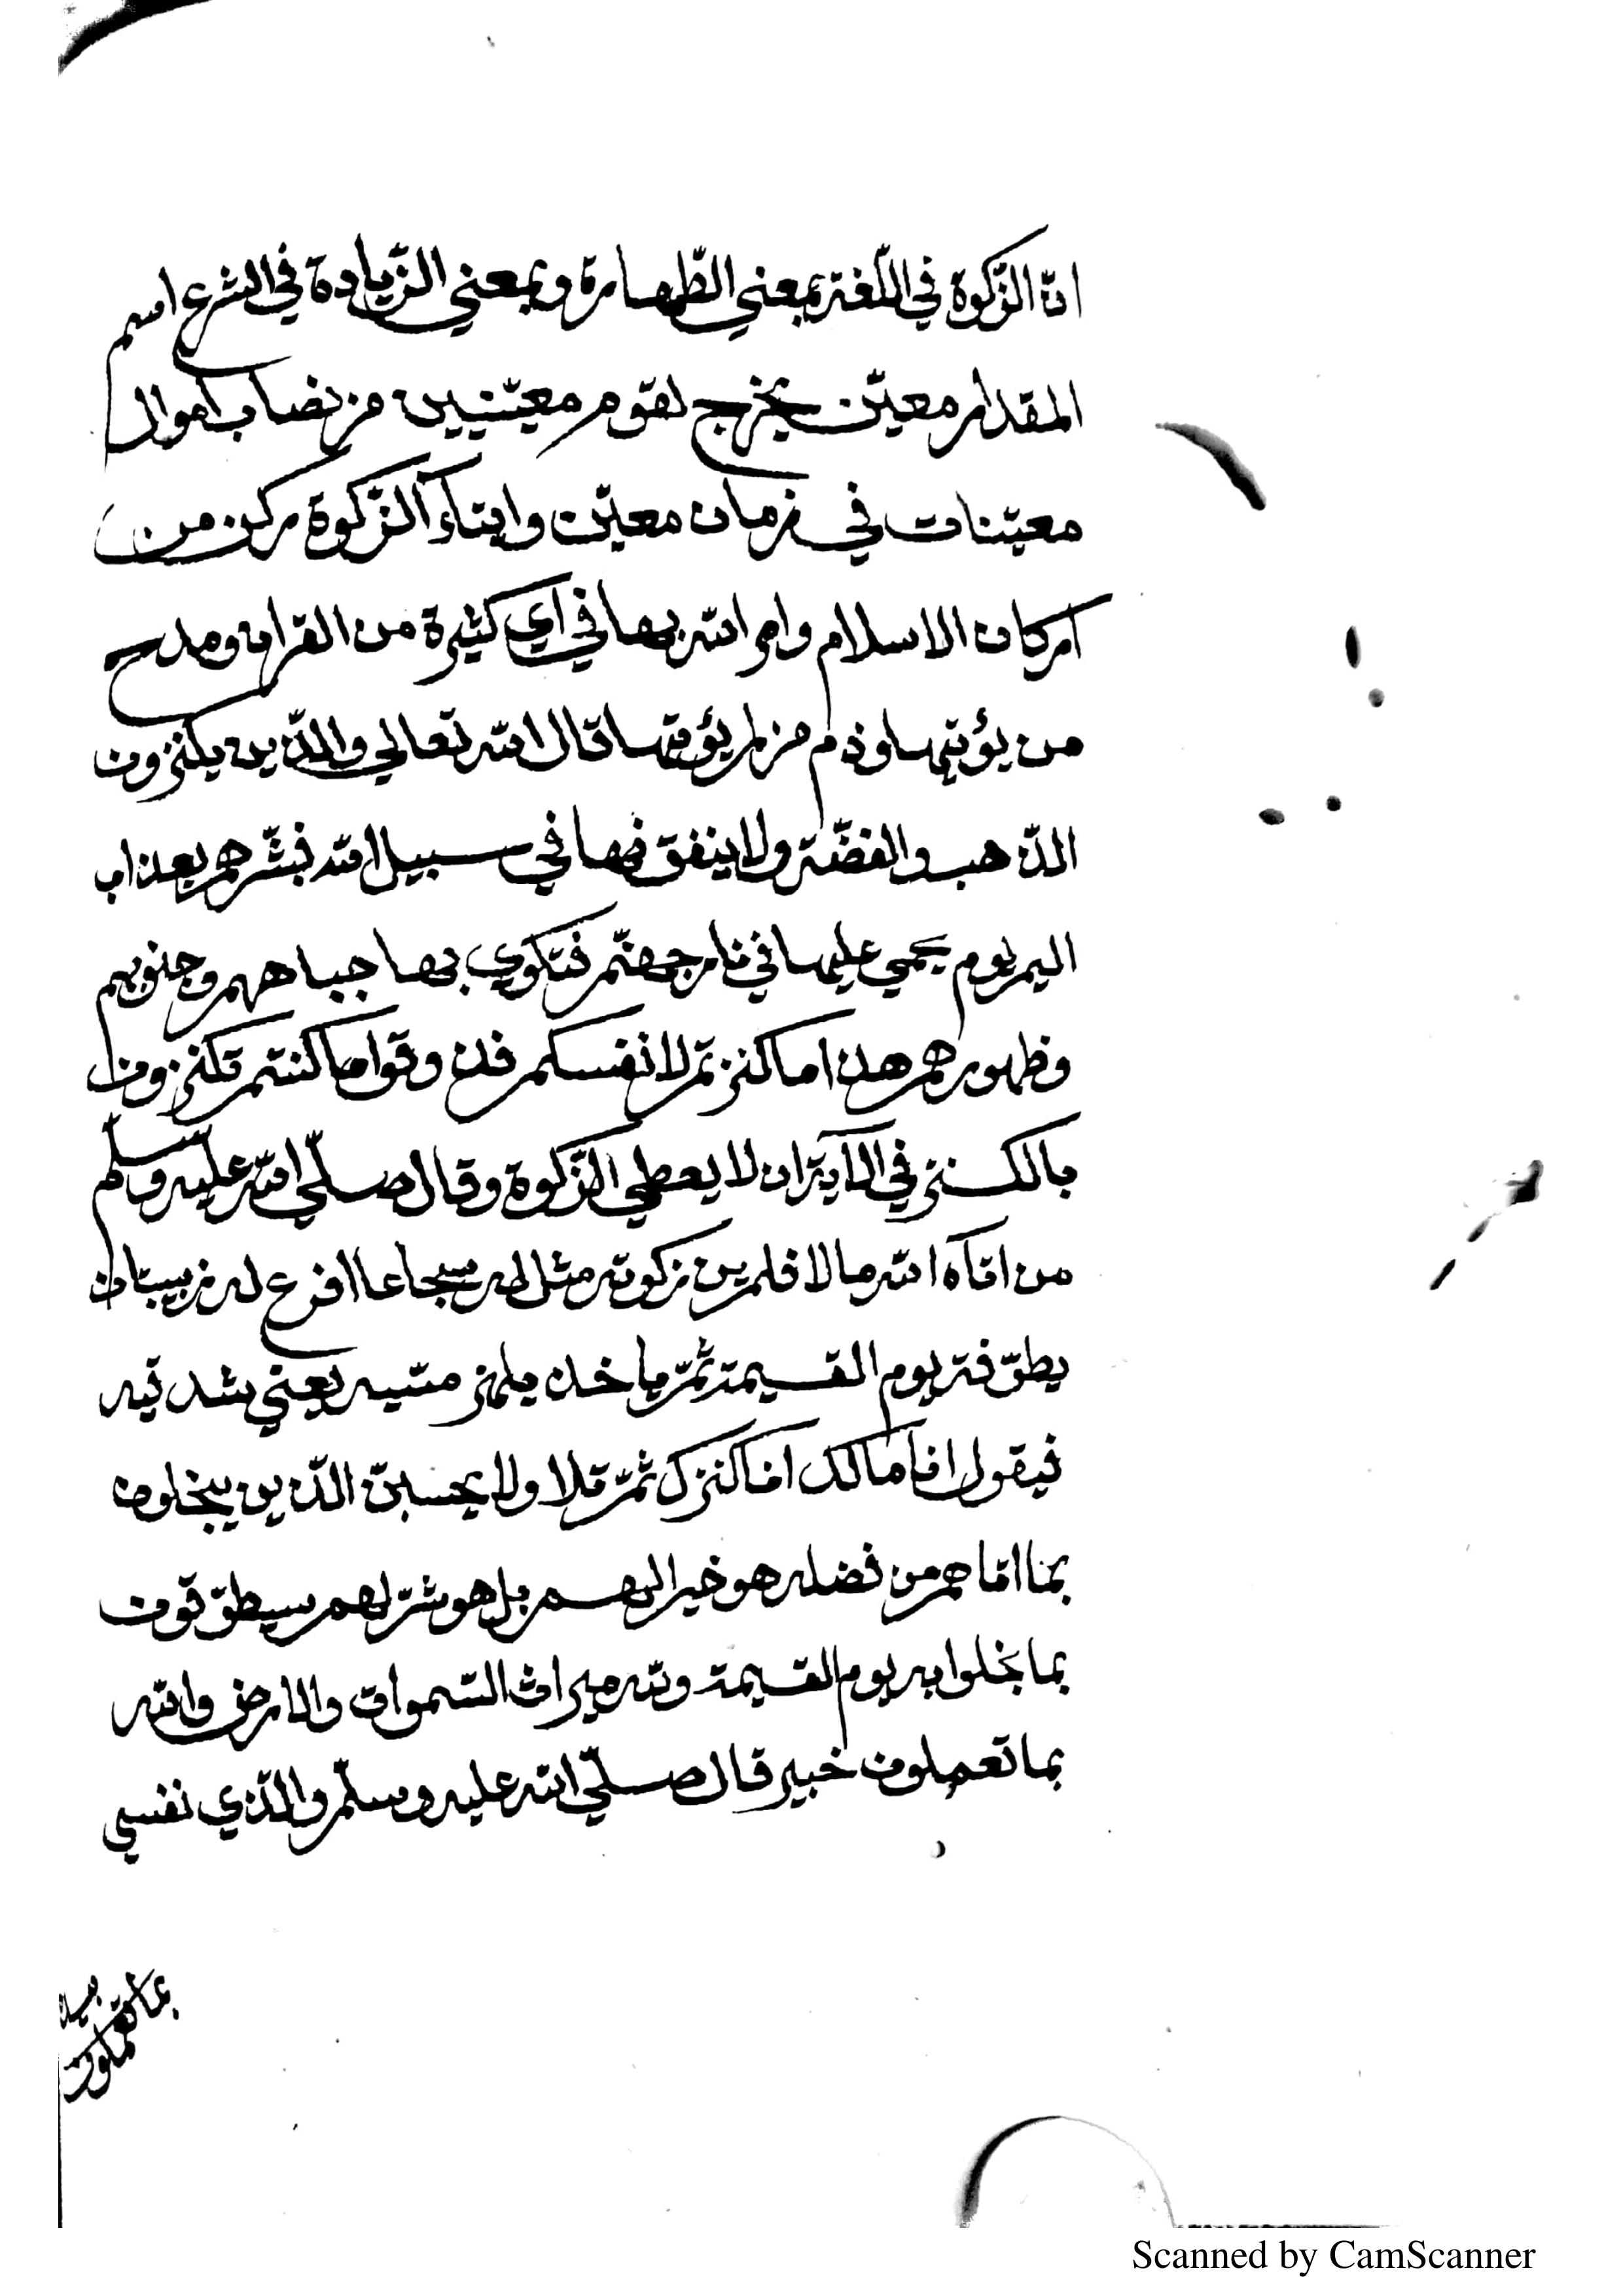 انّ الزّكوة في اللّغة بمعني الطّهارة وبمعني الزّيادة في الشرع اسم
المقدار معيّن يخرج لقوم معيّنين من نصاب اموال
معيّنات في زمان معيّن وايتاء الزّكوة ركن من
اركان الاسلام وامر الله بها في اي كثيرة من القران ومدح
من يؤتيها وذم من لم يؤتها قال الله تعالي والّذين يكنزون
الذّهب والفضّة ولا ينفقونها في سبيل الله فبشّرهم بعذاب
اليم يوم يحمي عليها في نار جهنّم فتكوي بها جباههم وجنوبهم
وظهورهم هذا ما كنزتم لانفسكم فذوقوا ما كنتم تكنزون
بالكنز في الاية ان لا يعطي الزّكوة وقال صلّي الله عليه وسلّم
من اتاه الله مالا فلم زكوته مثل له سجاعا اقرع له زبيبتان
يطوّقته يوم القيمة ثمّ ياخذ يعني شدقيه
فيقول انا مالك انا كنزك ثمّ تلا ولا يحسبنّ الّذين يبخلون
بما اتاهم من فضله هو خيرا لهم بل هو شرّ لهم سيطوّقون
بما بخلوا به يوم القيمة ولله ميراث السّموات والارض والله
بما تعملون خبير قال صلّي الله عليه وسلّم والّذي نفسي
Scanned by CamScanner